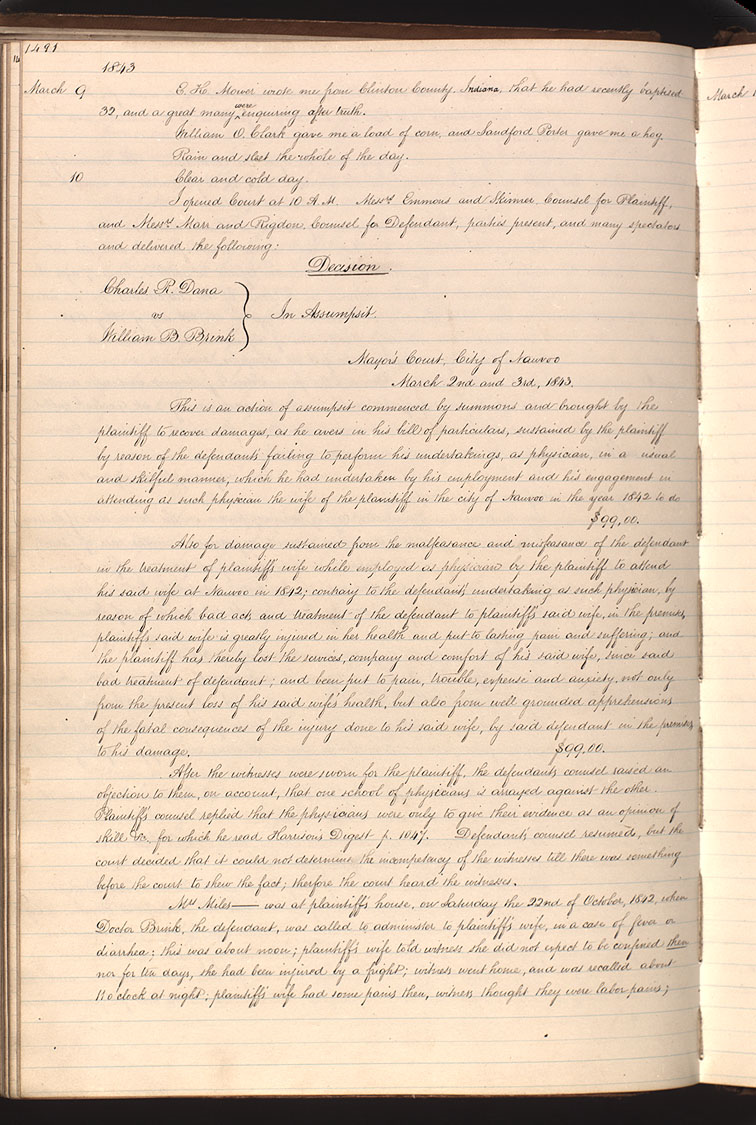 1491
1843
March 9 E. H. Mower wrote me from Clinton County, Indiana, that he had recently baptised
32, and a great many were enquiring after truth.
William O. Clark gave me a load of corn, and Sandford Porter gave me a hog.
Rain and sleet the whole of the day.
10 Clear and cold day.
I opened Court at 10 A.M. Mess.rs Emmons and Skinner, Counsel for Plaintiff,
and Mess.rs Marr and Rigdon, Counsel for Defendant, parties present, and many spectators
and delivered the following:
Decision.
Charles R. Dana
vs
William B. Brink
In Assumpsit.
Mayor's Court, City of Nauvoo
March 2nd and 3rd, 1843.
This is an action of assumpsit commenced by summons and brought by the
plaintiff to recover damages, as he avers in his bill of particulars, sustained by the plaintiff
by reason of the defendants failing to perform his undertakings, as physician, in a usual
and skilful manner, which he had undertaken by his employment and his engagement in
attending as such physician the wife of the plaintiff in the city of Nauvoo in the year 1842 to do
$99.00.
Also for damage sustained from the malfeasance and misfeasance of the defendant
in the treatment of plaintiff's wife while employed as physician by the plaintiff to attend
his said wife at Nauvoo in 1842; contrary to the defendant's undertaking as such physician, by
reason of which bad act, and treatment of the defendant to plaintiff's said wife, in the premises,
plaintiff's said wife is greatly injured in her health and put to lasting pain and suffering; and
the plaintiff has thereby lost the services, company and comfort of his said wife, since said
bad treatment of defendant; and been put to pain, trouble, expense and anxiety, not only
from the present loss of his said wife's health, but also from well grounded apprehensions
of the fatal consequences of the injury done to his said wife, by said defendant in the premises
to his damage. $99.00.
After the witnesses were sworn for the plaintiff, the defendant's counsel raised an
objection to them, on account, that one school of physicians is arrayed against the other.
Plaintiff's counsel replied that the physicians were only to give their evidence as an opinion of
skill &c, for which he read Harrison's Digest p. 1047. Defendant's counsel resumed, but the
court decided that it could not determine the incompetency of the witnesses till there was something
before the court to shew the fact; therfore the court heard the witnesses.
Mrs Miles—— was at plaintiff's house, on Saturday the 22nd of October, 1842, when
Doctor Brink, the defendant, was called to adminster to plaintiff's wife, in a case of fever or
diarrhea; this was about noon; plaintiff's wife told witness she did not expect to be confined then
nor for ten days, she had been injured by a fright; witness went home, and was recalled about
11 o'clock at night; plaintiff's wife had some pains then, witness thought they were labor pains;
March